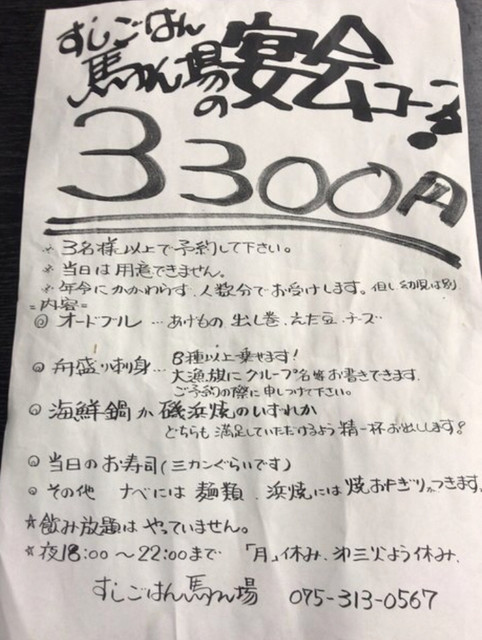 すしごはん
馬かん場の宴会コース!
3300円
※3名様以上で予約して下さい。
※当日は用意できません。
※年令にかかわらず、人数分でお受けします。但し幼児は別
=内容=
◎ オードブル … あげもの 出し巻、えだ豆、チーズ
◎ 舟盛り刺身… 8種以上乗せます!
大漁旗にグループ名等お書きできます。
ご予約の際に申しつけて下さい。
◎ 海鮮鍋か磯浜焼のいずれか
どちらも満足していただけるよう精一杯お出しします!
◎ 当日のお寿司(三カンぐらいです)
◎ その他 ナベには麺類、浜焼には焼おにぎりがつきます。
☆飲み放題はやっていません。
☆夜18:00〜22:00まで 「月」休み、第三火よう休み、
すしごはん馬かん場 075-313-0567